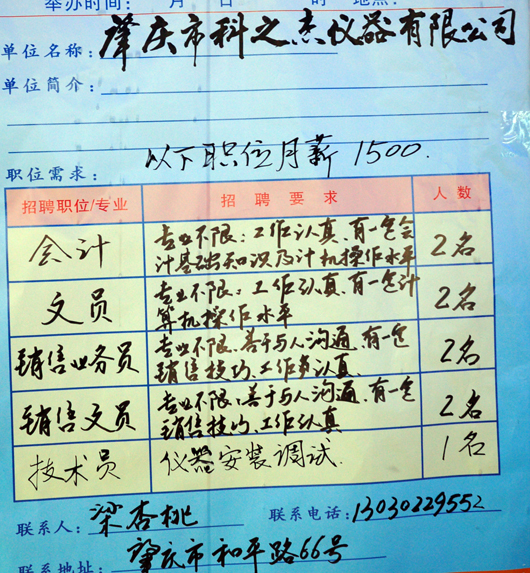 举办时间: 月 日 时 地点:
单位名称: 肇庆市科之杰仪器有限公司
单位简介:
以下职位月薪1500.
职位需求:
招聘职位/专业 招聘要求 人数
会计 专业不限:工作认真、有一定会
计基础知识及计机操作水平 2名
文员 专业不限:工作认真、有一定计
算机操作水平 2名
销售业务员 专业不限、善于与人沟通、有一定
销售技巧、工作认真 2名
销售文员 专业不限:善于与人沟通、有一定
销售技巧、工作认真 2名
技术员 仪器安装调试. 1名
联系人: 梁杏桃 联系电话: 13030229552
联系地址: 肇庆市和平路66号